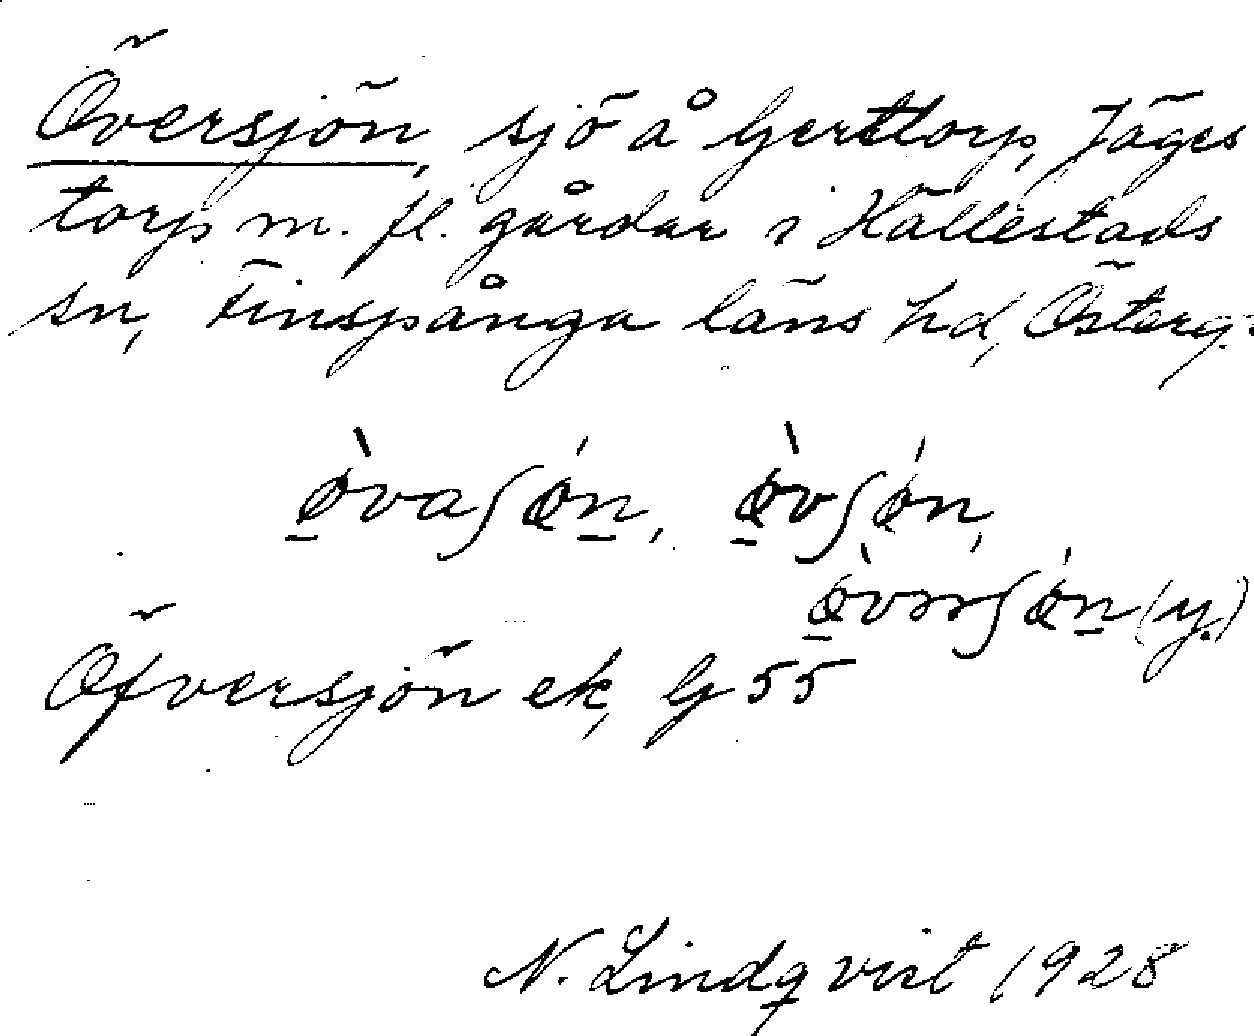 Översjön, sjö å Gerttorp, Jäges
torp m. fl. gårdar i Hällestads
sn, Finspånga läns hd, Österg.
Öfversjön ek, G 55
N. Lindqvist 1928